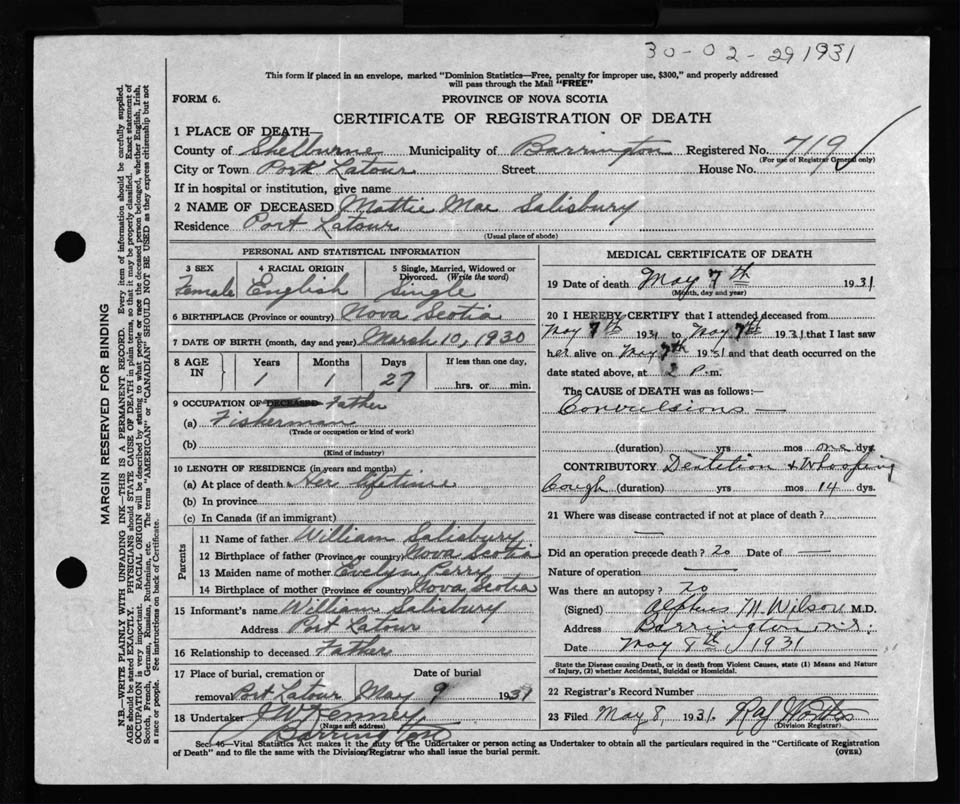 30-02-291931
This form if placed in an envelope, marked "Dominion Statistics—Free, penalty for improper use, $300," and properly addressed
will pass through the Mail "FREE"
FORM 6.
PROVINCE OF NOVA SCOTIA
CERTIFICATE OF REGISTRATION OF DEATH
1 PLACE OF DEATH—
County of Shelburne Municipality of Barrington Registered No. 719
(For use of Registrar General only)
City or Town Port Latour Street House No.
If in hospital or institution, give name
2 NAME OF DECEASED Mattie Mae Salisbury
Residence Port Latour
(Usual place of abode)
PERSONAL AND STATISTICAL INFORMATION
3 SEX 4 RACIAL ORIGIN 5 Single, Married, Widowed or
Divorced. (Write the word)
Female English Single
6 BIRTHPLACE (Province or country) Nova Scotia
7 DATE OF BIRTH (month, day and year) March 10, 1930
8 AGE IN Years Months Days If less than one day,
1 1 27 hrs. or min.
9 OCCUPATION OF DECEASED Father
(a) Fisherman
(Trade or occupation or kind of work)
(b)
(Kind of industry)
10 LENGTH OF RESIDENCE (in years and months)
(a) At place of death Her lifetime
(b) In province
(c) In Canada (if an immigrant)
Parents
11 Name of father William Salisbury
12 Birthplace of father (Province or country) Nova Scotia
13 Maiden name of mother Evelyn Perry
14 Birthplace of mother (Province or country) Nova Scotia
15 Informant's name William Salisbury
Address Port Latour
16 Relationship to deceased Father
17 Place of burial, cremation or Date of burial
removal Port Latour May 9 1931
18 Undertaker J W Kenney
(Name and address)
Barrington
MEDICAL CERTIFICATE OF DEATH
19 Date of death May 7th 1931
(Month, day and year)
20 I HEREBY CERTIFY that I attended deceased from
May 7th 1931 to May 7th 1931 that I last saw
her alive on May 7th 1931 and that death occurred on the
date stated above, at 2 P. m.
The CAUSE OF DEATH was as follows:
Convulsions —
(duration) yrs mos one dys.
CONTRIBUTORY Dentition + Whooping
Cough (duration) yrs mos 14 dys.
21 Where was disease contracted if not at place of death?
—
Did an operation precede death? No Date of —
Nature of operation —
Was there an autopsy? No
(Signed) Alpheus M. Wilson M.D.
Address Barrington N.S.
Date May 8th 1931
State the Disease causing Death, or in death from Violent Causes, state (1) Means and Nature
of Injury, (2) whether Accidental, Suicidal or Homicidal.
22 Registrar's Record Number
23 Filed May 8, 1931.
(Division Registrar)
Sec. 46—Vital Statistics Act makes it the duty of the Undertaker or person acting as Undertaker to obtain all the particulars required in the "Certificate of Registration
of Death" and to file the same with the Division Registrar who shall issue the burial permit. (OVER)
MARGIN RESERVED FOR BINDING
N.B.—WRITE PLAINLY WITH UNFADING INK—THIS IS A PERMANENT RECORD. Every item of information should be carefully supplied.
AGE should be stated EXACTLY. PHYSICIANS should STATE CAUSE OF DEATH in plain terms, so that it may be properly classified. Exact statement of
OCCUPATION is very important. RACIAL ORIGIN will be described by stating to what people or race the deceased person belonged, whether English, Irish,
Scotch, French, German, Russian, Ruthenian, etc. The terms "AMERICAN" or "CANADIAN" SHOULD NOT BE USED as they express citizenship but not
a race or people. See instructions on back of Certificate.